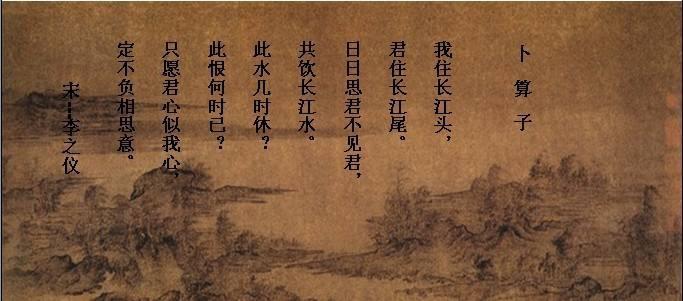 卜算子
我住长江头，
君住长江尾。
日日思君不见君，
共饮长江水。
此水几时休？
此恨何时已？
只愿君心似我心，
定不负相思意。
宋--李之仪